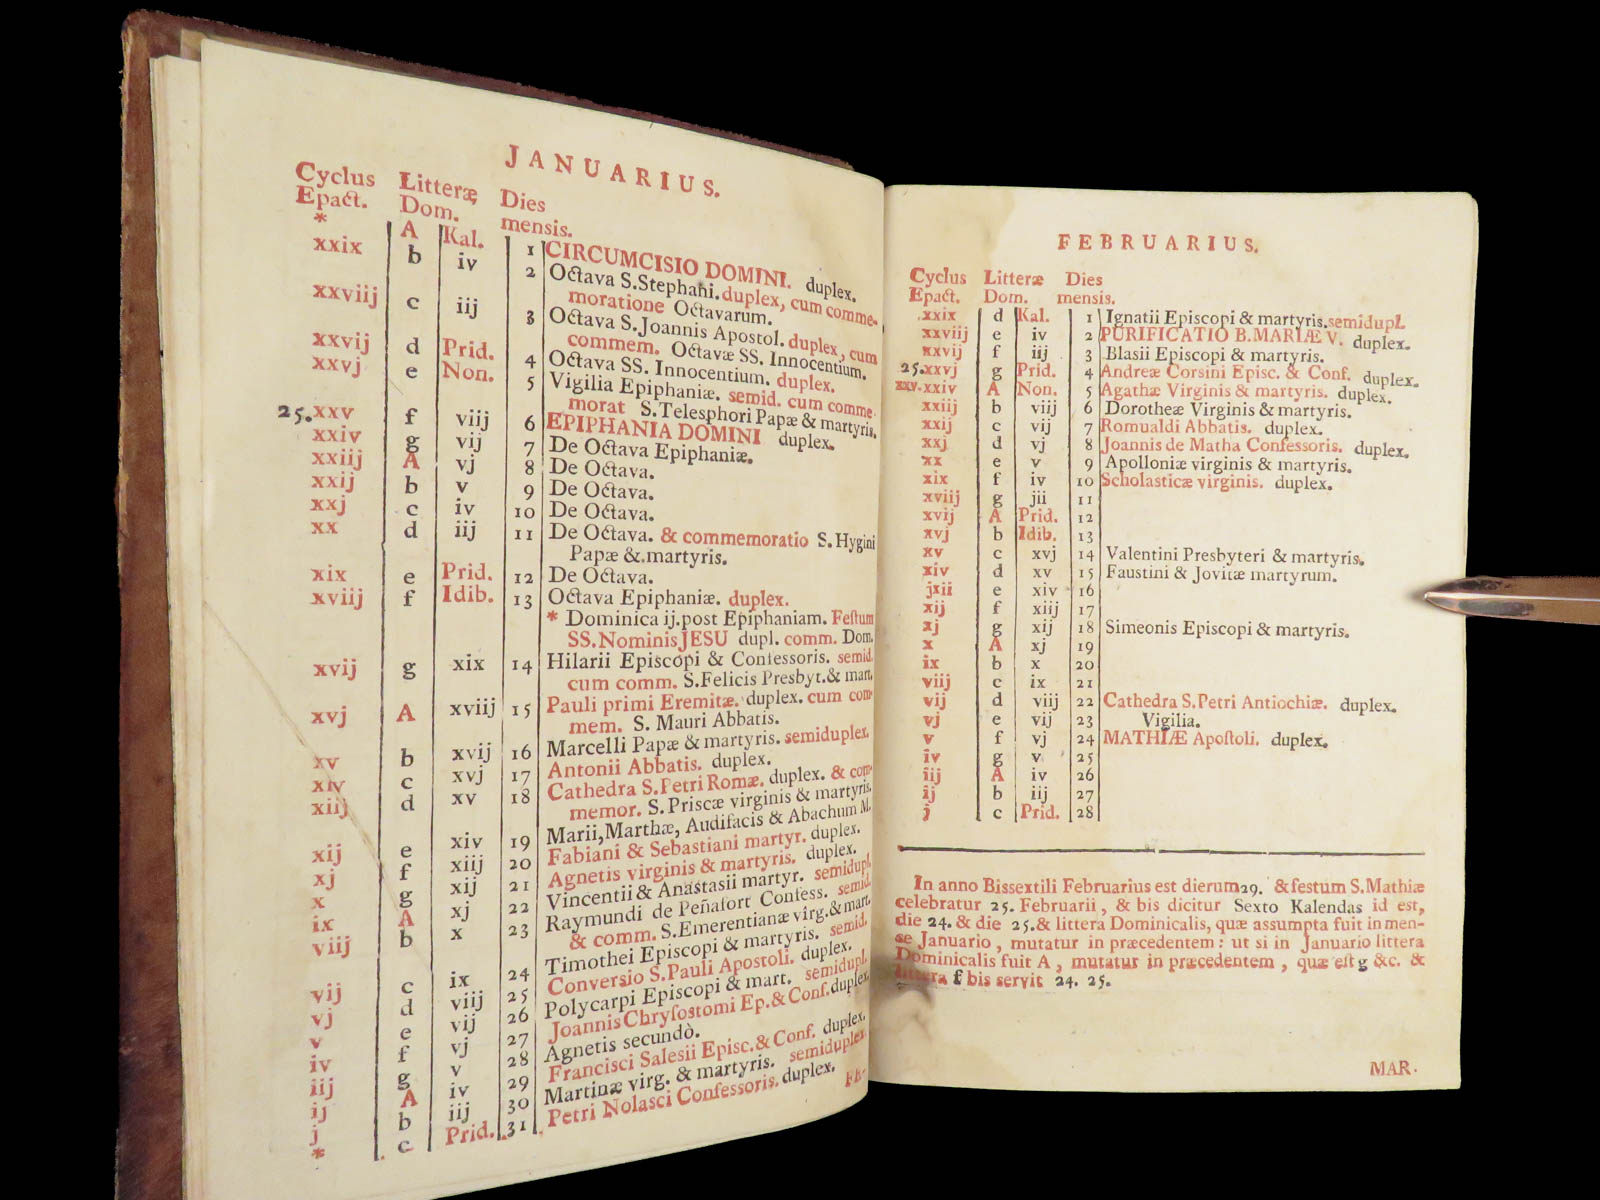 JANUARIUS.
Cyclus Litteræ Dies
Epact. Dom. mensis.
* A Kal. 1 CIRCUMCISIO DOMINI. duplex.
xxix b iv 2 Octava S.Stephani. duplex, cum comme-
moratione Octavarum.
xxviij c iij 3 Octava S.Joannis Apostol. duplex, cum
commem. Octavæ SS. Innocentium.
xxvij d Prid. 4 Octava SS. Innocentium. duplex.
xxvj e Non. 5 Vigilia Epiphaniæ. semid. cum comme-
morat S.Telesphori Papæ & martyris.
25.xxv f viij 6 EPIPHANIA DOMINI duplex.
xxiv g vij 7 De Octava Epiphaniæ.
xxiij A vj 8 De Octava.
xxij b v 9 De Octava.
xxj c iv 10 De Octava.
xx d iij 11 De Octava. & commemoratio S. Hygini
Papæ &.martyris.
xix e Prid. 12 De Octava.
xviij f Idib. 13 Octava Epiphaniæ. duplex.
* Dominica ij.post Epiphaniam. Festum
SS.Nominis JESU dupl. comm. Dom.
xvij g xix 14 Hilarii Episcopi & Confessoris. semid.
cum comm. S.Felicis Presbyt.& mart.
xvj A xviij 15 Pauli primi Eremitæ. duplex. cum com-
mem. S. Mauri Abbatis.
xv b xvij 16 Marcelli Papæ & martyris. semiduplex.
xiv c xvj 17 Antonii Abbatis. duplex.
xiij d xv 18 Cathedra S.Petri Romæ. duplex. & com-
memor. S.Priscæ virginis & martyris.
xij e xiv 19 Marii, Marthæ, Audifacis & Abachum M.
xj f xiij 20 Fabiani & Sebastiani martyr. duplex.
x g xij 21 Agnetis virginis & martyris. duplex.
ix A xj 22 Vincentii & Anastasii martyr. semidupl.
viij b x 23 Raymundi de Peñafort Confess. semid.
& comm. S.Emerentianæ virg.& mart.
vij c ix 24 Timothei Episcopi & martyris. semid.
vj d viij 25 Conversio S.Pauli Apostoli. duplex.
v e vij 26 Polycarpi Episcopi & mart. semidupl.
iv f vj 27 Joannis Chrysostomi Ep.& Conf. duplex.
iij g v 28 Agnetis secundò.
ij A iv 29 Francisci Salesii Episc.& Conf. duplex.
j b iij 30 Martinæ virg. & martyris. semiduplex.
* c Prid. 31 Petri Nolasci Confessoris. duplex.
FE-
FEBRUARIUS.
Cyclus Litteræ Dies
Epact. Dom. mensis.
xxix d Kal. 1 Ignatii Episcopi & martyris.semidupl.
xxviij e iv 2 PURIFICATIO B.MARIÆ V. duplex.
xxvij f iij 3 Blasii Episcopi & martyris.
25.xxvj g Prid. 4 Andreæ Corsini Episc. & Conf. duplex.
xxv.xxiv A Non. 5 Agathæ Virginis & martyris. duplex.
xxiij b viij 6 Dorotheæ Virginis & martyris.
xxij c vij 7 Romualdi Abbatis. duplex.
xxj d vj 8 Joannis de Matha Confessoris. duplex.
xx e v 9 Apolloniæ virginis & martyris.
xix f iv 10 Scholasticæ virginis. duplex.
xviij g jii 11
xvij A Prid. 12
xvj b Idib. 13
xv c xvj 14 Valentini Presbyteri & martyris.
xiv d xv 15 Faustini & Jovitæ martyrum.
jxii e xiv 16
xij f xiij 17
xj g xij 18 Simeonis Episcopi & martyris.
x A xj 19
ix b x 20
viij c ix 21
vij d viij 22 Cathedra S.Petri Antiochiæ. duplex.
vj e vij 23 Vigilia.
v f vj 24 MATHIÆ Apostoli. duplex.
iv g v 25
iij A iv 26
ij b iij 27
j c Prid. 28
In anno Bissextili Februarius est dierum29. & festum S.Mathiæ
celebratur 25. Februarii, & bis dicitur Sexto Kalendas id est,
die 24. & die 25. & littera Dominicalis, quæ assumpta fuit in men-
se Januario, mutatur in præcedentem: ut si in Januario littera
Dominicalis fuit A, mutatur in præcedentem, quæ est g &c. &
littera f bis servit 24. 25.
MAR.